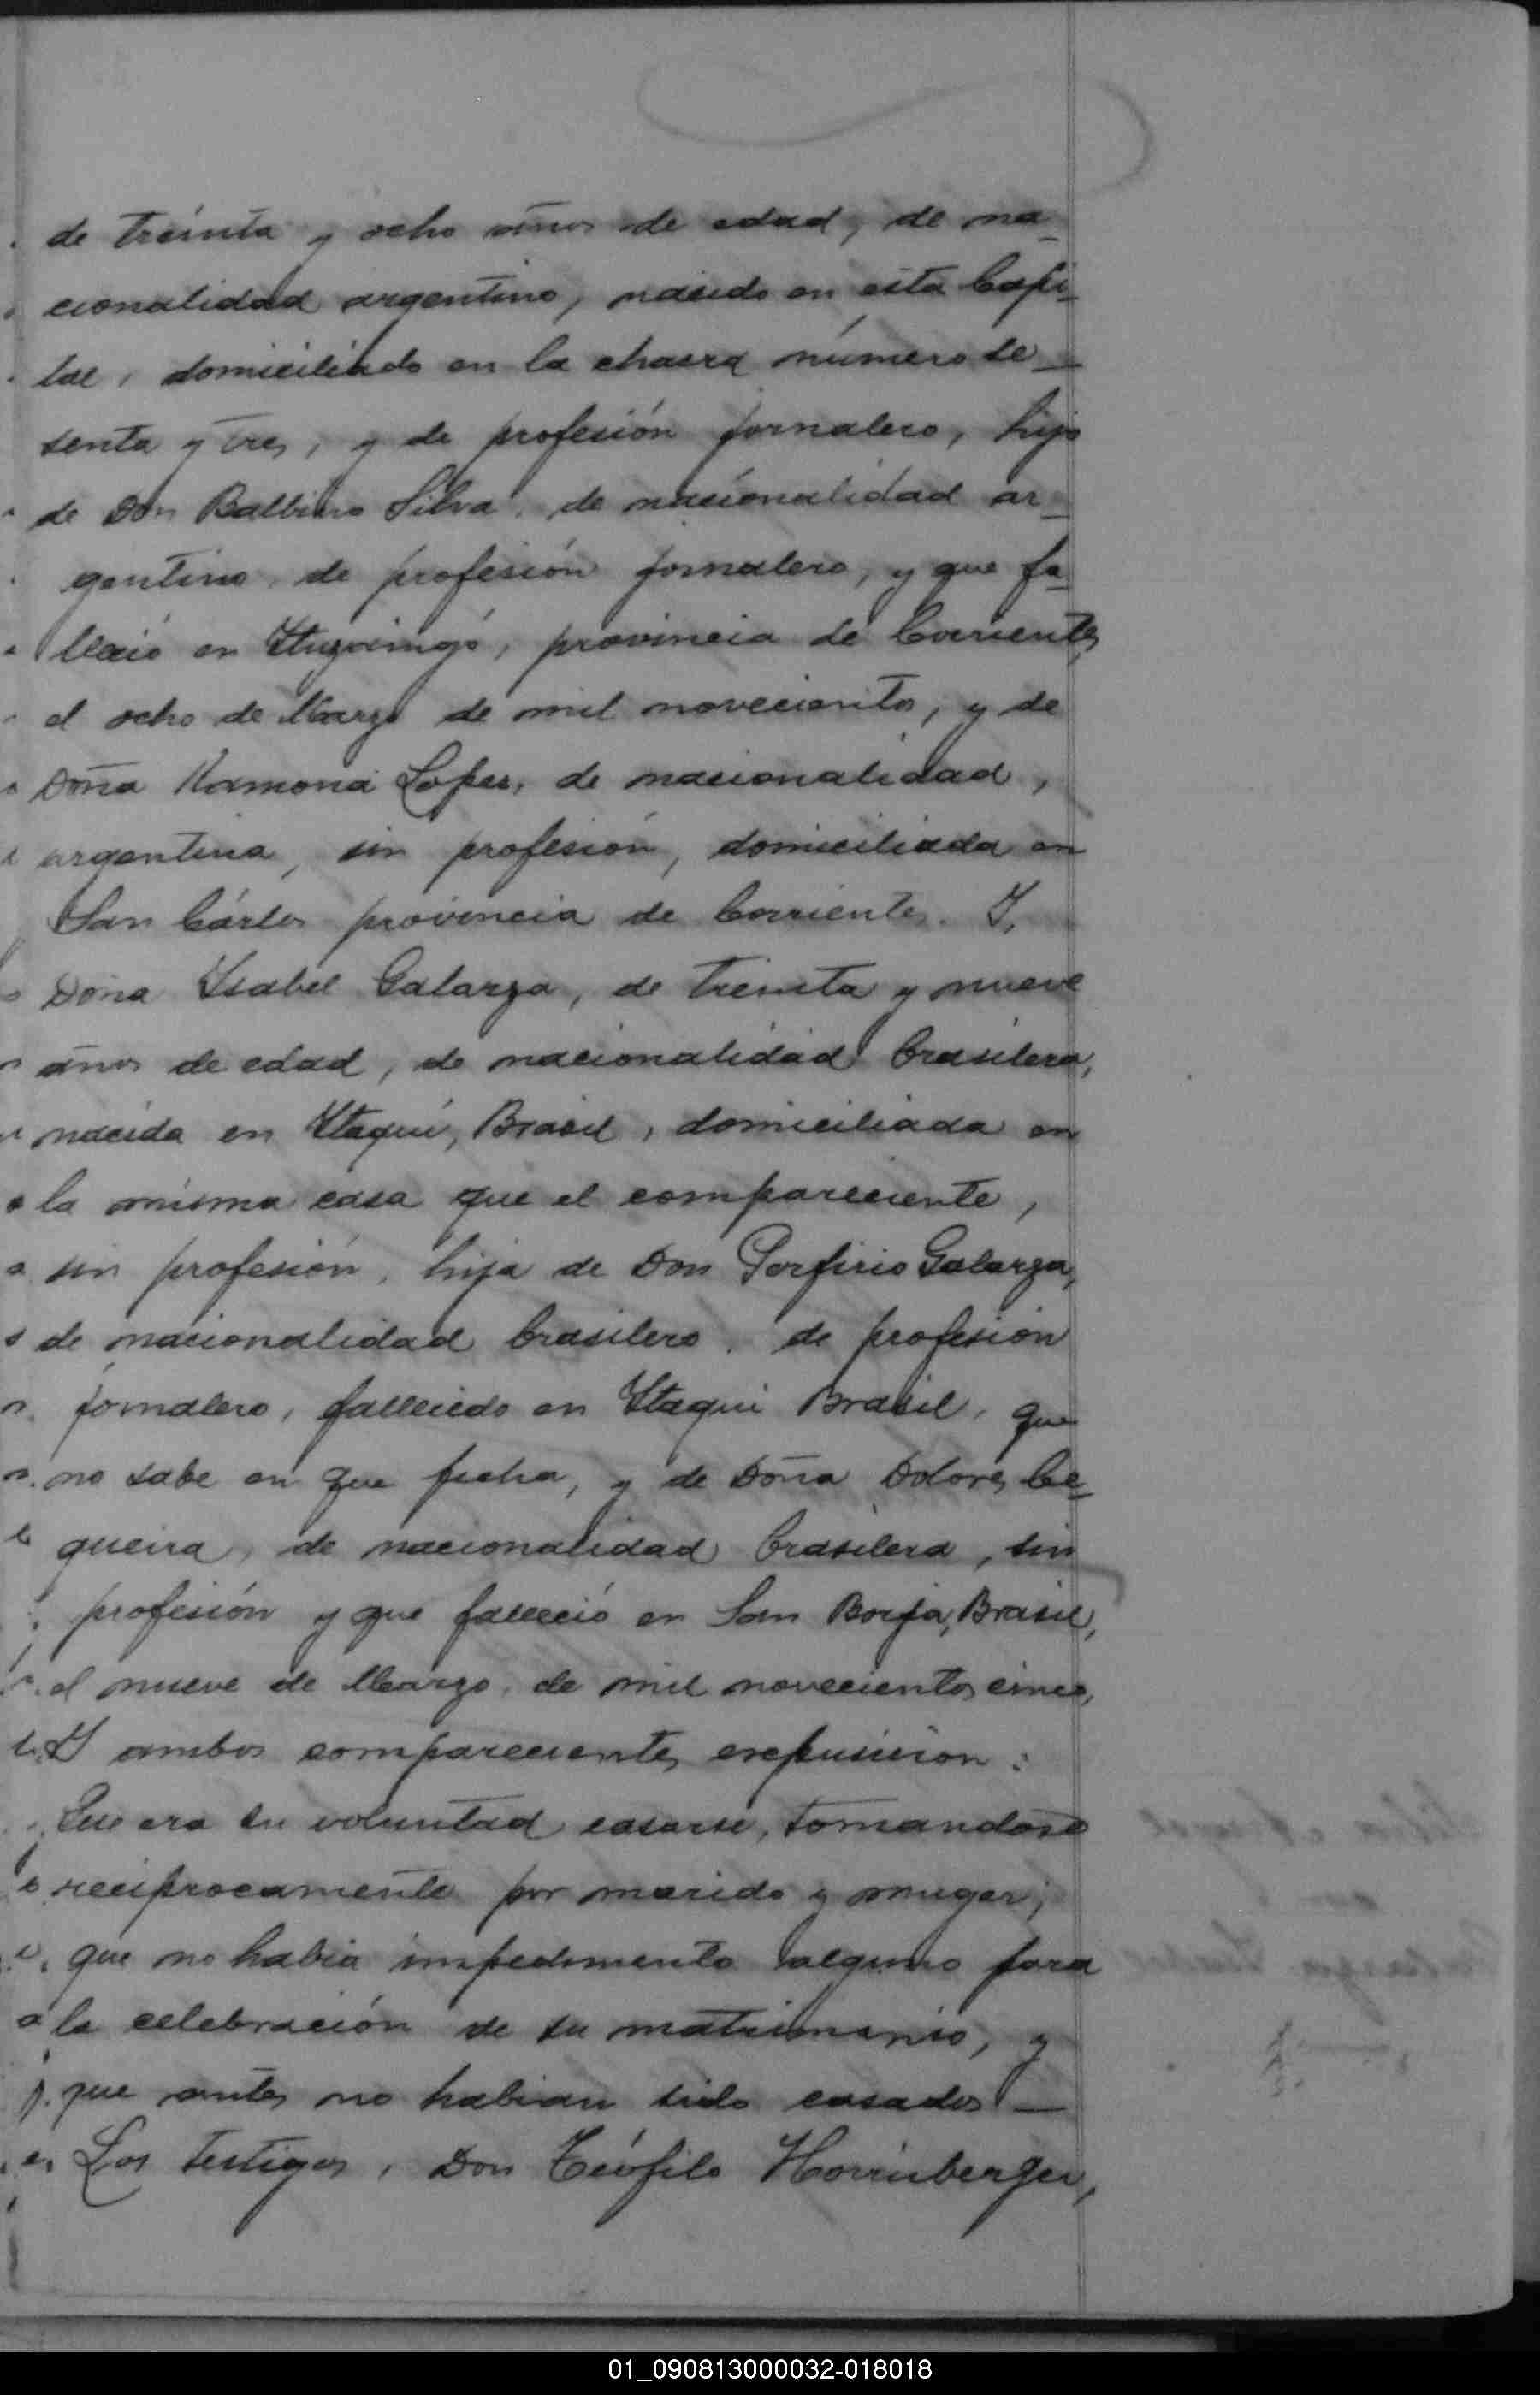 de treinta y ocho años de edad, de na_
cionalidad argentino, nacido en esta Capi_
tal, domiciliado en la chacra número se_
senta y tres, y de profesión jornalero, hijo
de Don Balbino Silva, de nacionalidad ar_
gentino, de profesión jornalero, y que fa_
lleció en Ituzaingó, provincia de Corrientes,
el ocho de Marzo de mil novecientos, y de
Doña Ramona Lopez, de nacionalidad,
argentina, sin profesión, domiciliada en
San Cárlos provincia de Corrientes. Y,
Doña Ysabel Galarza, de treinta y nueve
años de edad, de nacionalidad brasilera,
nacida en Ytaquí, Brasil, domiciliada en
la misma casa que el compareciente,
sin profesión, hija de Don Porfirio Galarza,
de nacionalidad brasilero, de profesión
jornalero, fallecido en Ytaqui Brasil, que
no sabe en que fecha, y de Doña Dolores Ce_
queira, de nacionalidad brasilera, sin
profesión y que falleció en San Borja, Brasil,
el nueve de Marzo, de mil novecientos cinco,
Y ambos comparecientes expusieron:
Que era su voluntad casarse, tomandose
reciprocamente por marido y muger;
que no habia impedimento alguno para
la celebración de su matrimonio, y
que antes no habian sido casados _
Los testigos, Don Teófilo Horrisberger,
01_090813000032-018018